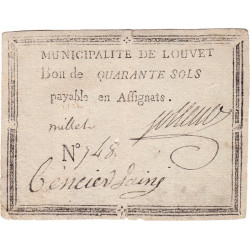 MUNICIPALITÉ DE LOUVET
Bon de QUARANTE SOLS
payable en Assignats.
millet
N.º 748.